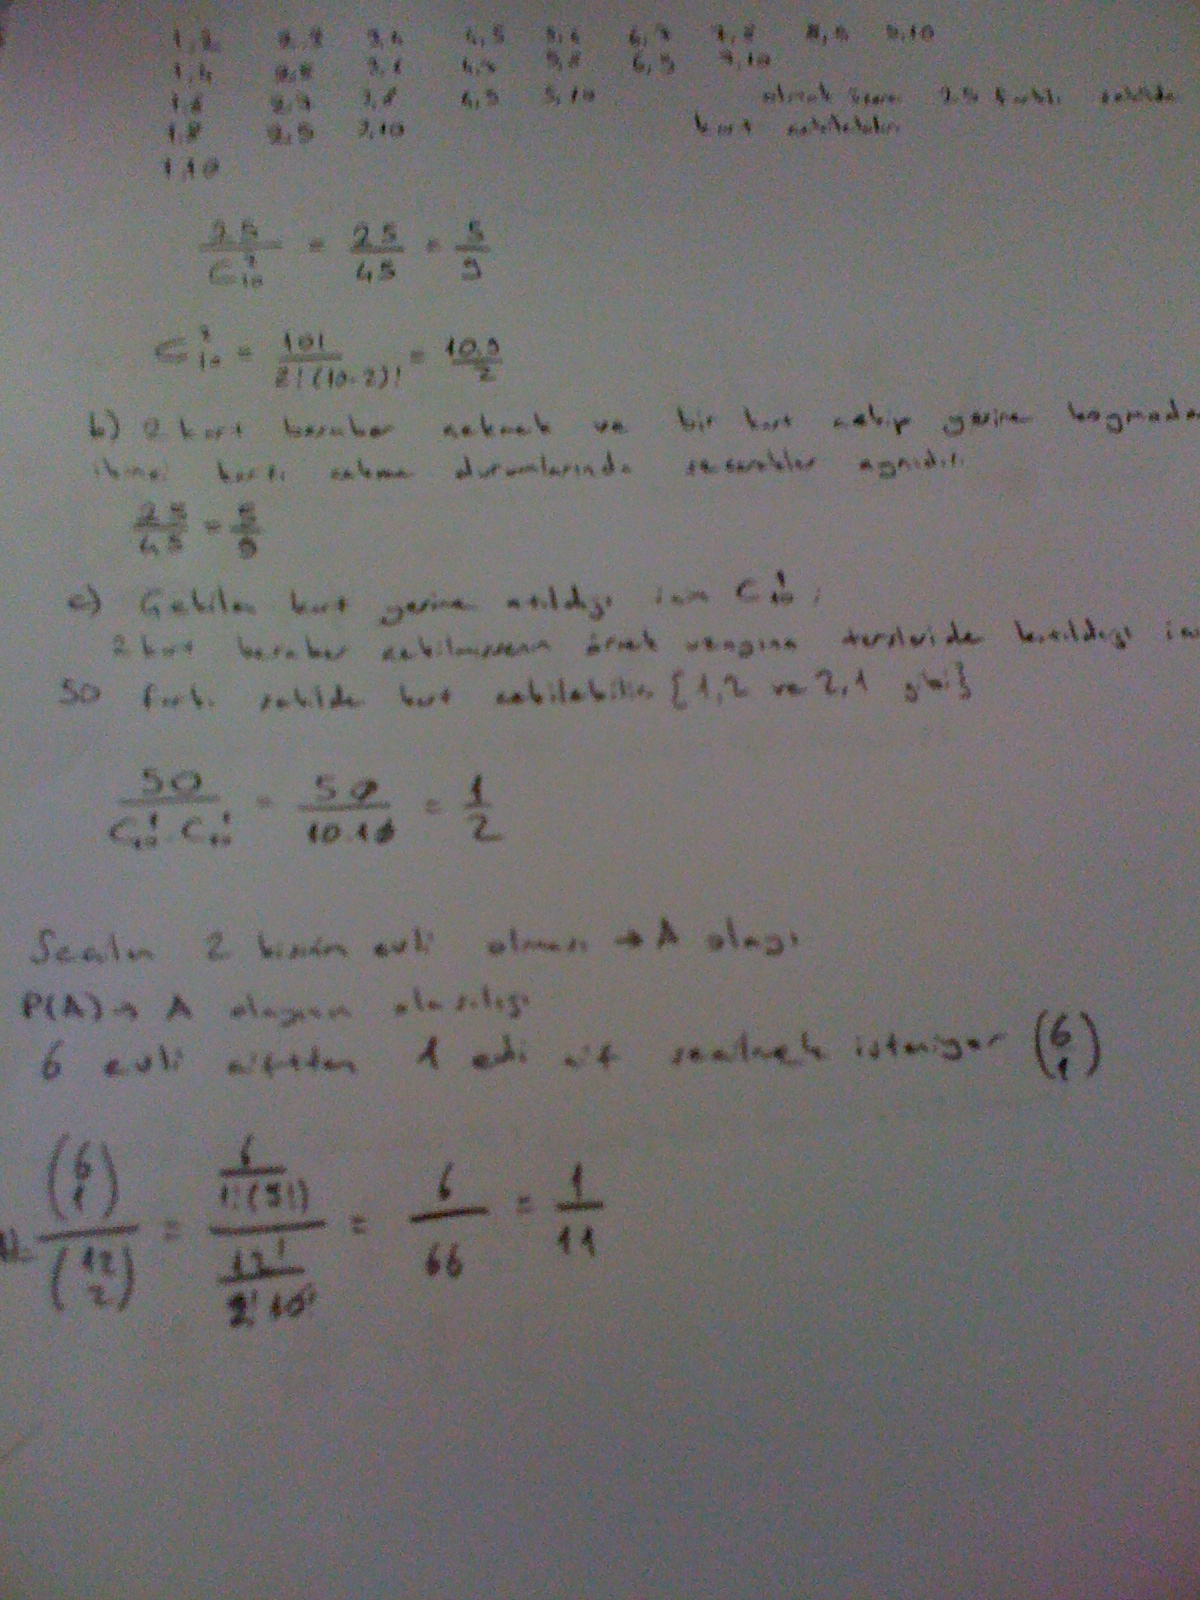 1,2 2,3 3,4 4,5 5,6 6,7 7,8 8,9 9,10
1,4 2,5 3,6 4,7 5,8 6,9 7,10
1,6 2,7 3,8 4,9 5,10 olmak üzere 25 farklı şekilde
1,8 2,9 3,10 kart çekilebilir
1,10
25 / C₁₀² = 25/45 = 5/9
C₁₀² = 10! / 2!(10-2)! = 10.9 / 2
b) 2 kart beraber çekmek ve bir kart çekip yerine koymadan
ikinci kartı çekme durumlarında aynıdır.
25/45 = 5/9
c) Çekilen kart yerine atıldığı için C₁₀¹;
2 kart beraber örnek tersleride katıldığı için
50 farklı şekilde kart çekilebilir {1,2 ve 2,1 gibi}
50 / C₁₀¹ . C₁₀¹ = 50 / 10.10 = 1/2
Seçilen 2 kişinin evli olması → A olayı
P(A) → A olayının olasılığı
6 evli çiftten 1 evli çift seçilmek isteniyor (6 1)
(6 1) / (12 2) = 6 / 1!(5!) / 12! / 2! 10! = 6/66 = 1/11